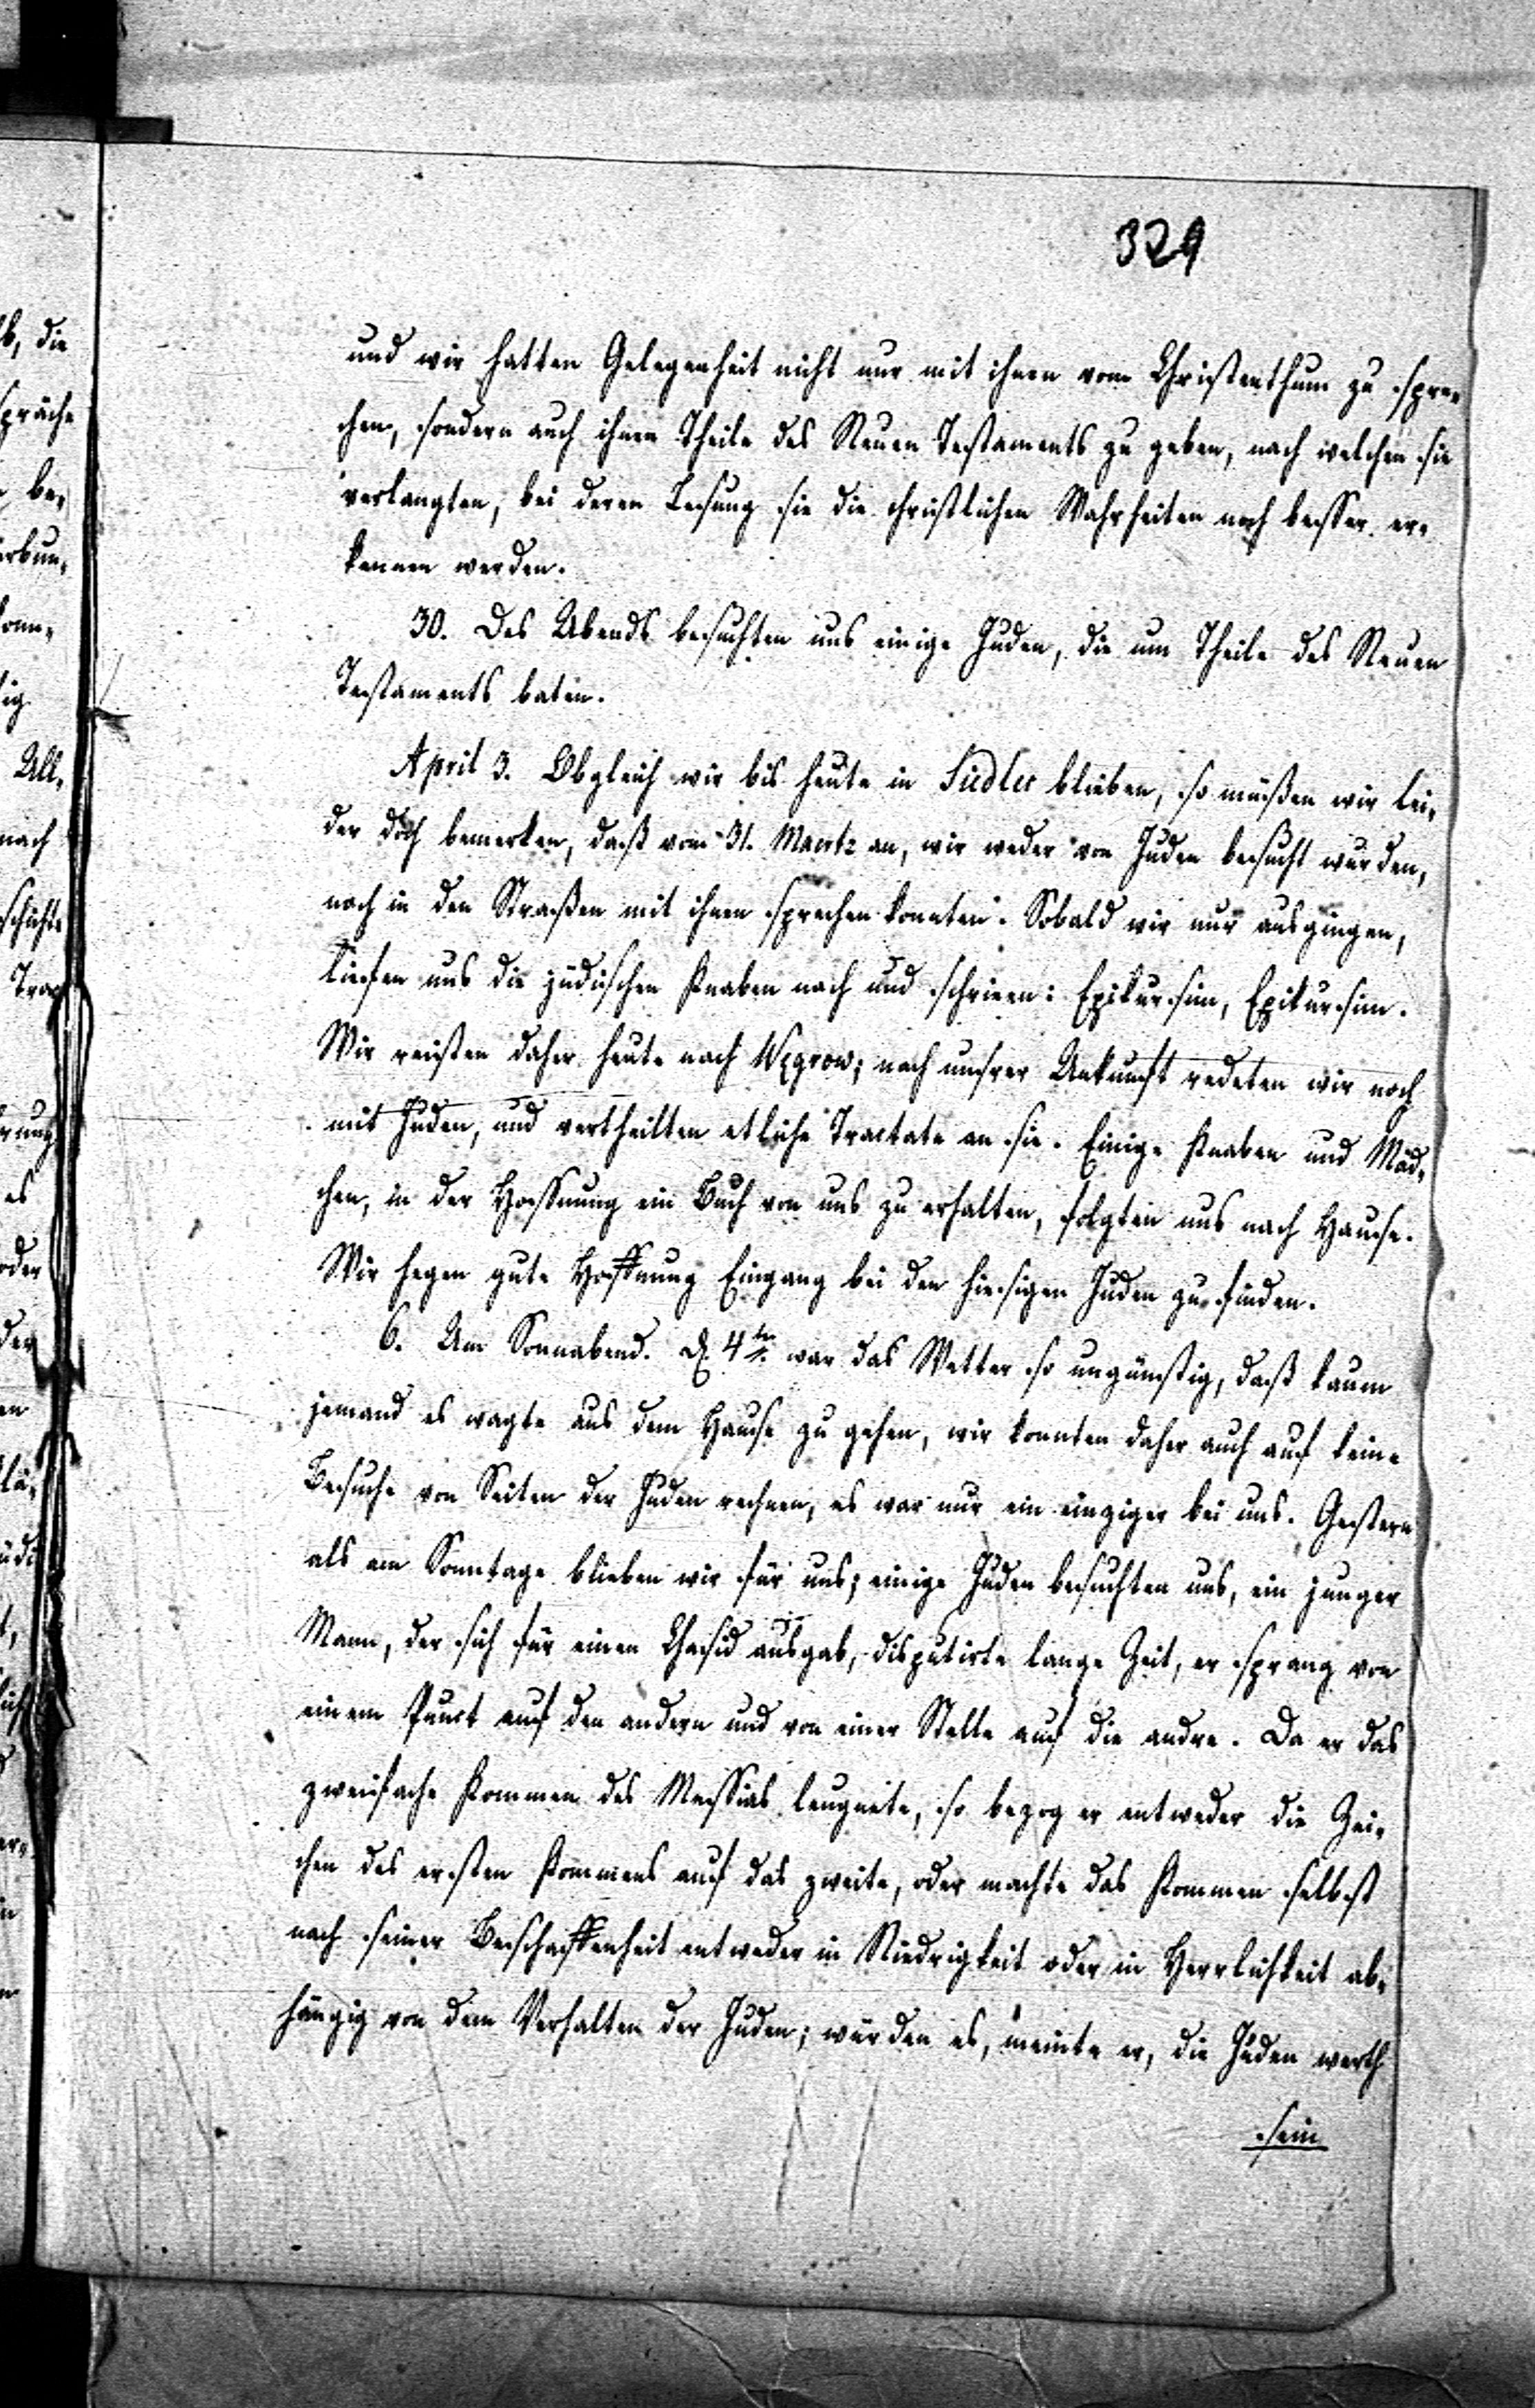 329
und wir hatten Gelegenheit nicht nur mit ihnen vom Christenthum zu spre-
chen, sondern auch ihnen Theile des Neuen Testaments zu geben, nach welchen sie
verlangten, bei deren Lesung sie die christlichen Wahrheiten noch besser er-
kennen werden.
30. Des Abends besuchten uns einige Juden, die um Theile des Neuen
Testaments baten.
April 3. Obgleich wir bis heute in Siedlec blieben, so müßen wir lei-
der doch bemerken, daß vom 31. Maertz an, wir weder von Juden besucht wurden,
noch in den Straßen mit ihnen sprechen konnten. Sobald wir nur ausgingen,
liefen uns die jüdischen Knaben nach und schrieen: Epikursim, Epikursim.
Wir reisten daher heute nach Węgrow; nach unsrer Ankunft redeten wir noch
mit Juden, und vertheilten etliche Tractate an sie. Einige Knaben und Mäd-
chen, in der Hoffnung ein Buch von uns zu erhalten, folgten uns nach Hause.
Wir hegen gute Hoffnung Eingang bei den hiesigen Juden zu finden.
6. Am Sonnabend d. 4ten war das Wetter so ungünstig, daß kaum
jemand es wagte aus dem Hause zu gehen, wir konnten daher auch auf keine
Besuche von Seiten der Juden rechnen, es war nur ein einziger bei uns. Gestern
als am Sonntage blieben wir für uns; einige Juden besuchten uns, ein junger
Mann, der sich für einen Chasid ausgab, disputirte lange Zeit, er sprang von
einem Punct auf den andern und von einer Stelle auf die andre. Da er das
zweifache Kommen des Messias leugnete, so bezog er entweder die Zei-
chen des ersten Kommens auf das zweite, oder machte das Kommen selbst
nach seiner Beschaffenheit entweder in Niedrigkeit oder in Herrlichkeit ab-
hängig von dem Verhalten der Juden; würden es, meinte er, die Juden werth
sein